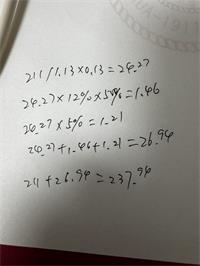 211/1.13×0.13=24.27
24.27×12%×50%=1.46
24.27×5%=1.21
24.27+1.46+1.21=26.94
211+26.94=237.94